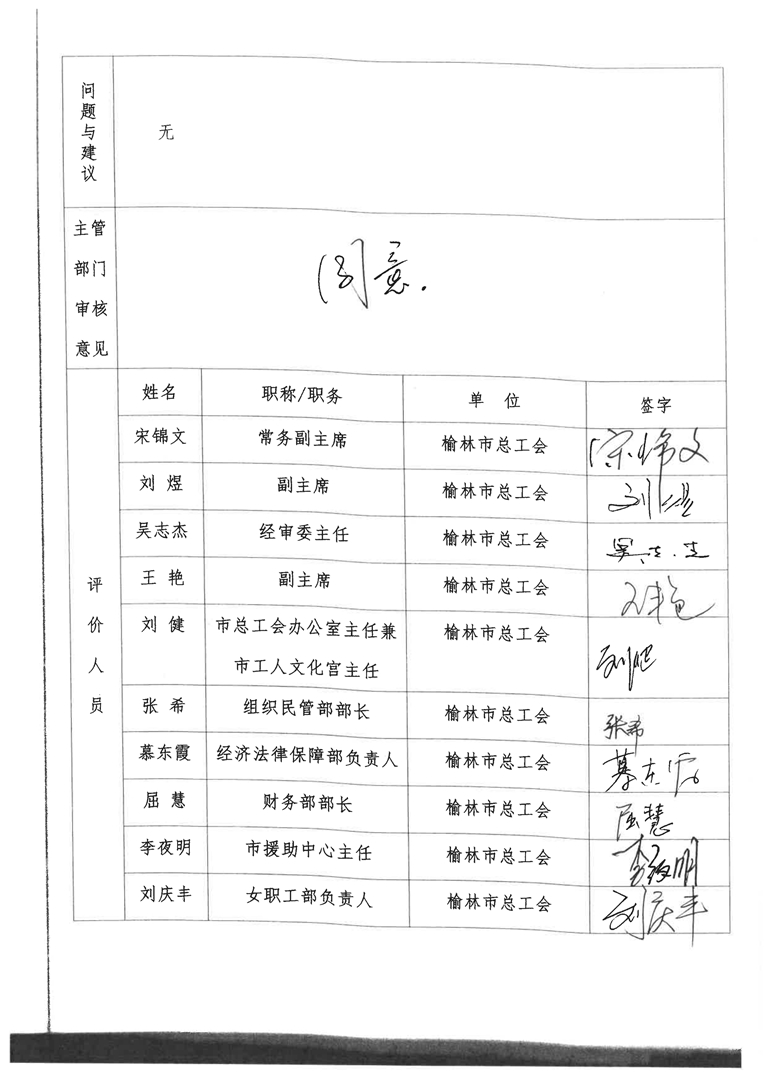 问题与建议
无
主管
部门
审核
意见
同意.
评价人员
姓名 职称/职务 单 位 签字
宋锦文 常务副主席 榆林市总工会 宋锦文
刘 煜 副主席 榆林市总工会 刘煜
吴志杰 经审委主任 榆林市总工会 吴志杰
王 艳 副主席 榆林市总工会 王艳
刘 健 市总工会办公室主任兼 榆林市总工会
市工人文化宫主任 刘健
张 希 组织民管部部长 榆林市总工会 张希
慕东霞 经济法律保障部负责人 榆林市总工会 慕东霞
屈 慧 财务部部长 榆林市总工会 屈慧
李夜明 市援助中心主任 榆林市总工会 李夜明
刘庆丰 女职工部负责人 榆林市总工会 刘庆丰